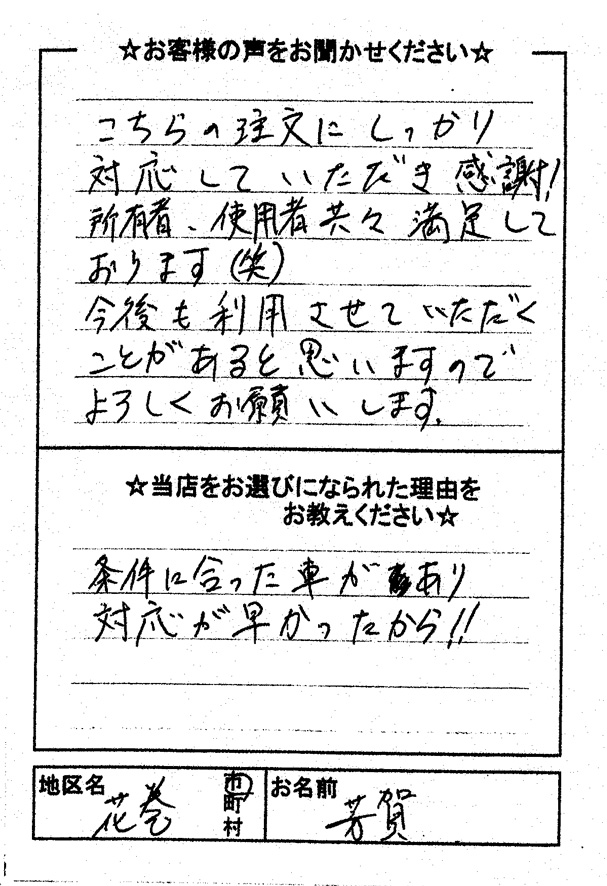 ☆お客様の声をお聞かせください☆
こちらの注文にしっかり
対応していただき感謝!
所有者、使用者共々満足して
おります(笑)
今後も利用させていただく
ことがあると思いますので
よろしくお願いします。
☆当店をお選びになられた理由を
お教えください☆
条件に合った車があり
対応が早かったから!!
地区名
花巻
市
町
村
お名前
芳賀